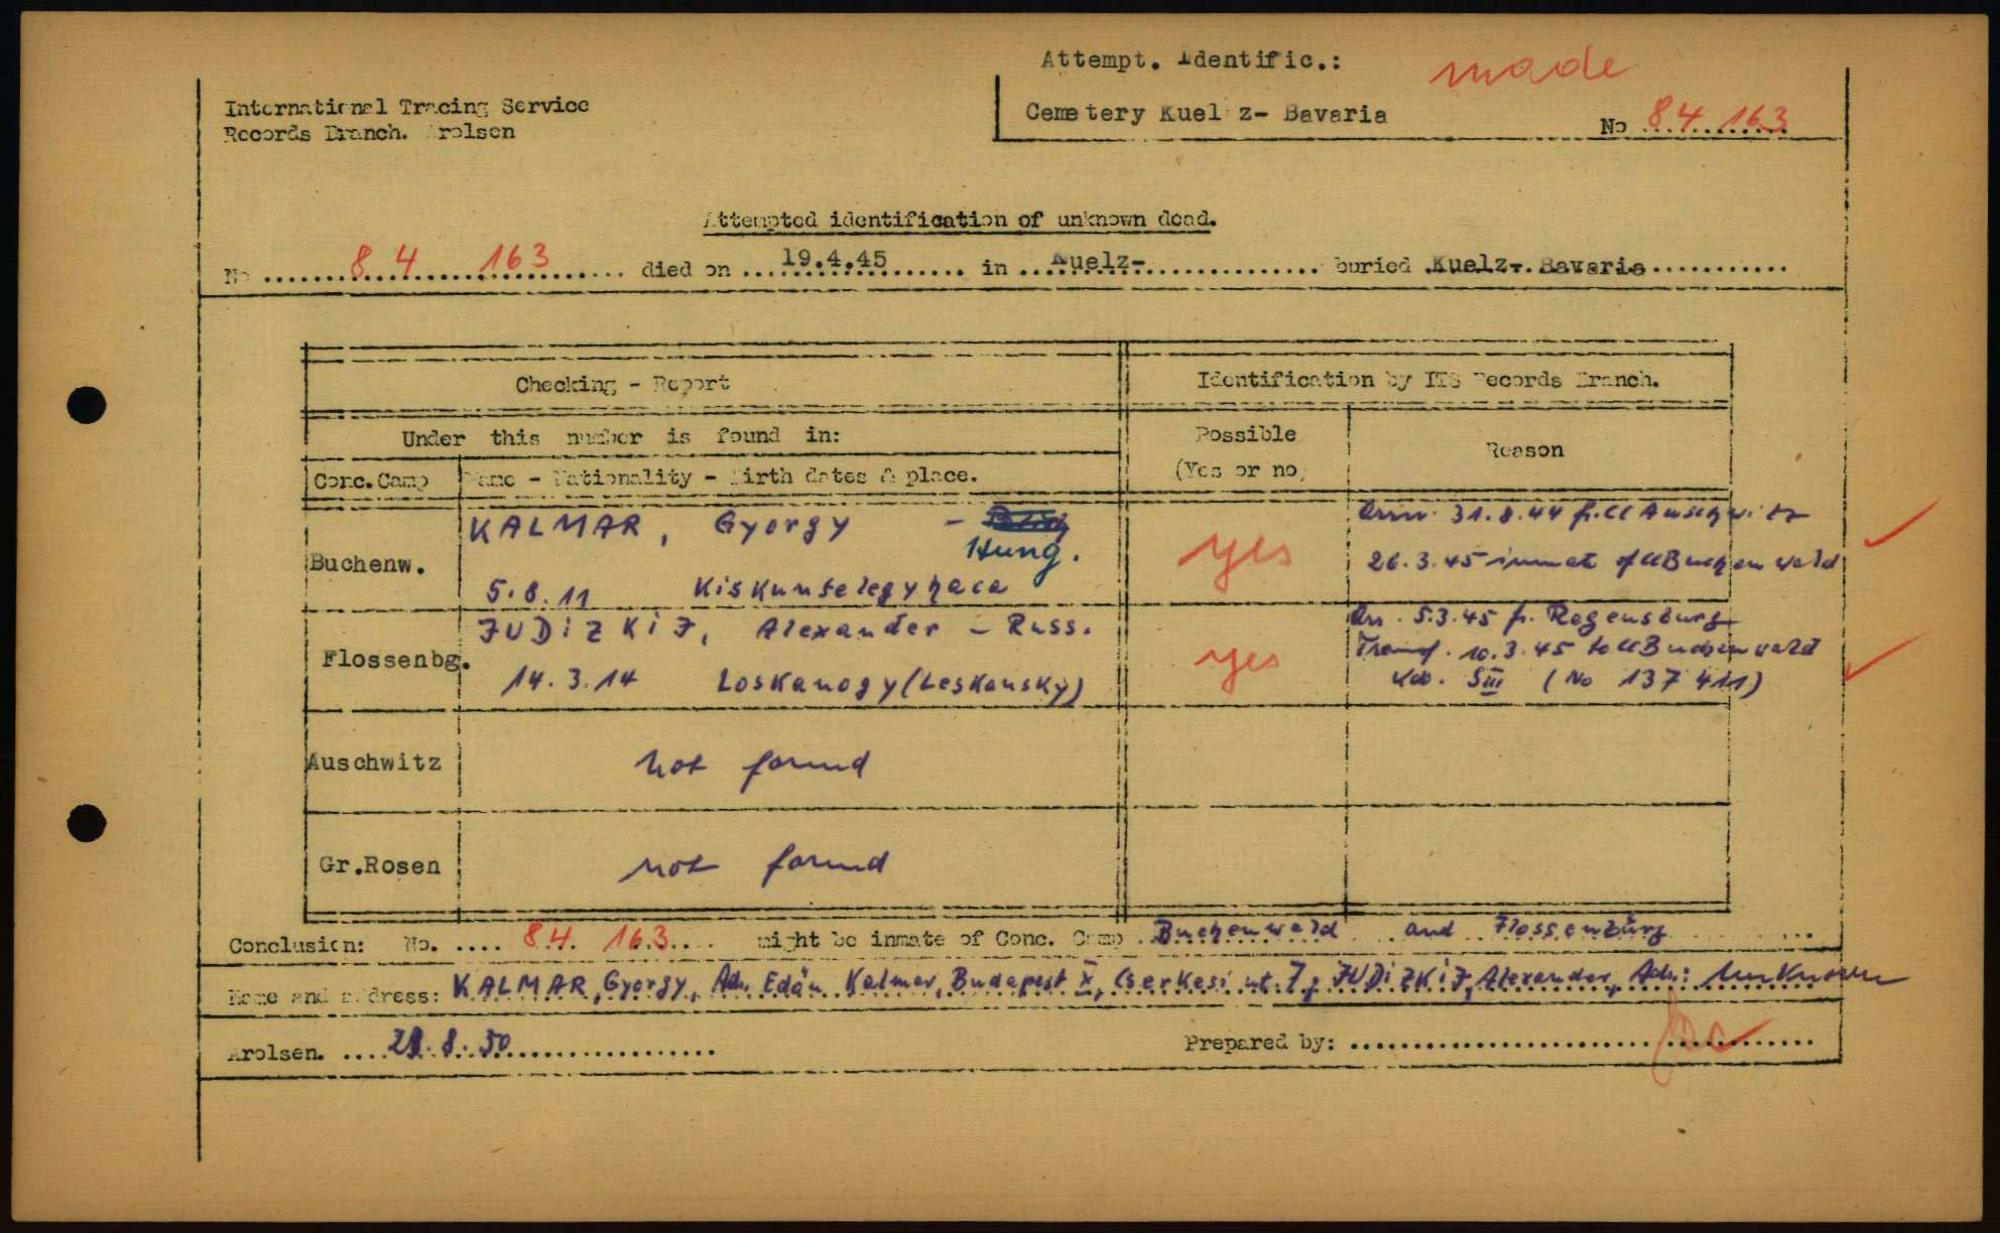 Attempt. Identific.: made
International Tracing Service
Records Branch. Arolsen
Cemetery Kuelz- Bavaria
No 84 163
Attempted identification of unknown dead.
No ....... 84 163 ....... died on ... 19.4.45 ....... in ... Kuelz- ............ buried .Kuelz-. Bavaria...........
Checking - Report
Identification by ITS Records Branch.
Under this number is found in:
Possible
(Yes or no)
Reason
Conc.Camp
Name - Nationality - Birth dates & place.
Buchenw.
KALMAR, György -
Hung.
5.8.11 Kiskunfelegyhaca
yes
Arriv. 31.8.44 fr. CC Auschwitz
26.3.45 inmat of CC Buchenwald
Flossenbg.
JUDiZKiJ, Alexander - Russ.
14.3.14 Loskanogy (Leskansky)
yes
Arr. 5.3.45 fr. Regensburg
Transf. 10.3.45 to CC Buchenwald
Kdo. SIII (No 137 411)
Auschwitz
not found
Gr.Rosen
not found
Conclusion: No. .... 84. 163.... might be inmate of Conc. Camp .. Buchenwald and Flossenbürg ...
Name and address: KALMAR, György, Adr. Edän Kalmar, Budapest X, Cserkesi ut. 7; JUDiZKiJ, Alexander, Adr: Unknown
Arolsen. .... 8.50 ...................
Prepared by: ..............................